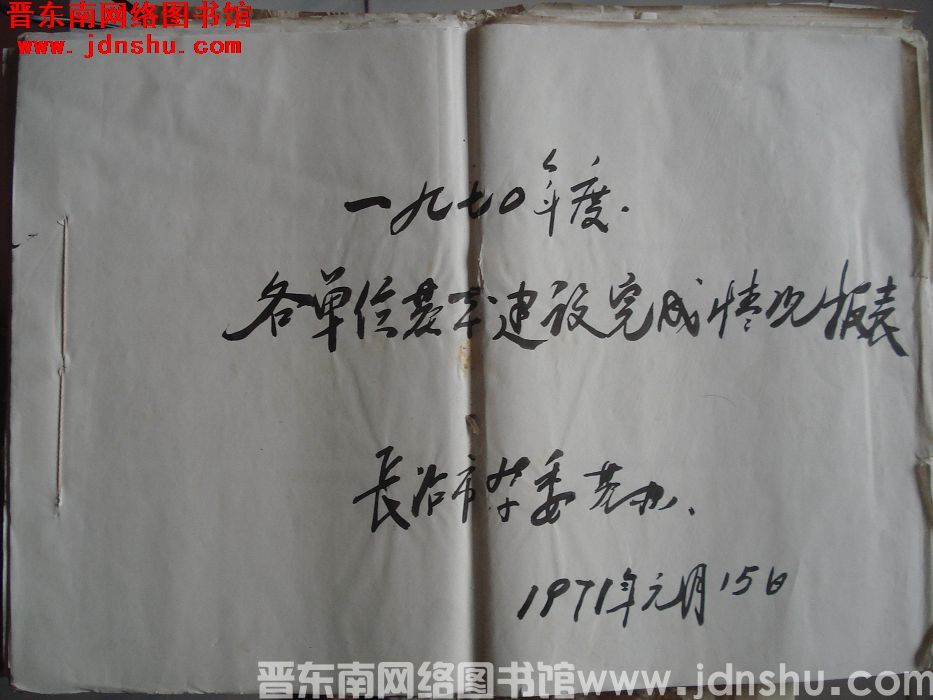 晋东南网络图书馆
www.jdnshu.com
一九七〇年度.
各单位基本建设完成情况报表
长治市革委基办、
1971年元月15日
晋东南网络图书馆 www.jdnshu.com